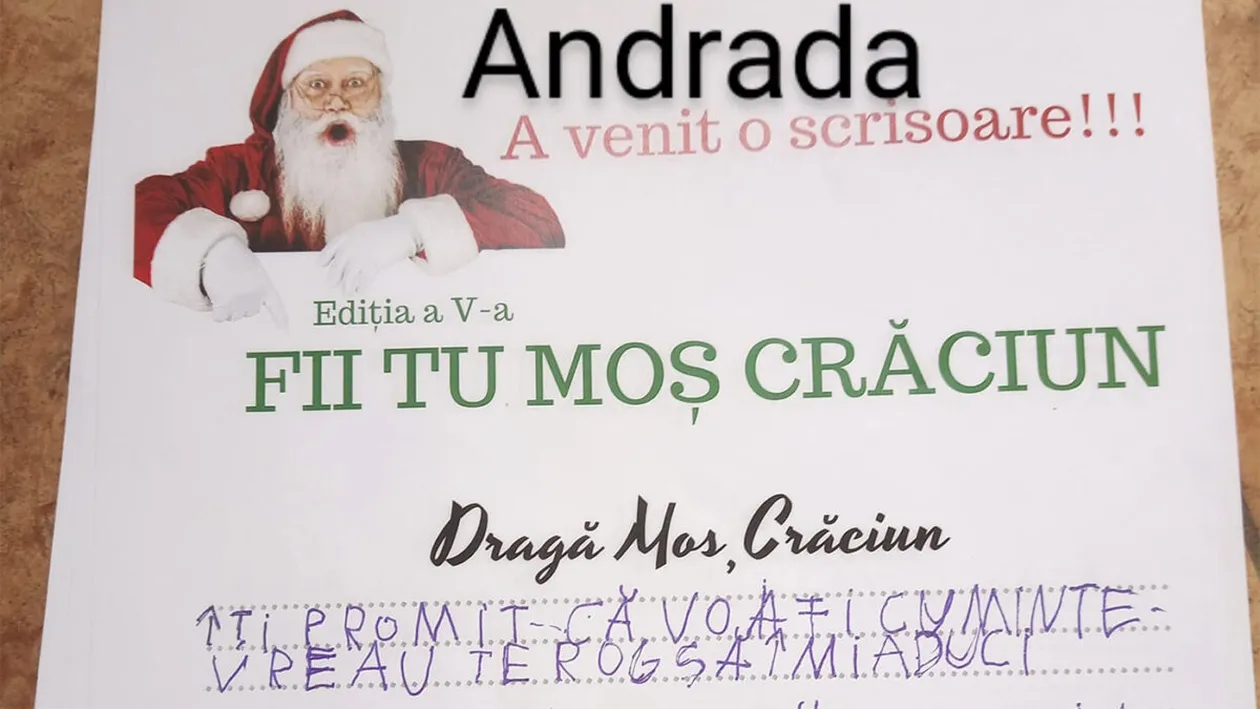 Andrada
A venit o scrisoare!!!
Ediția a V-a
FII TU MOȘ CRĂCIUN
Dragă Moș Crăciun
ÎȚi PROMIT CĂ VOA FI CUMINTE-
VREAU TE ROG SA ÎMI ADUCI